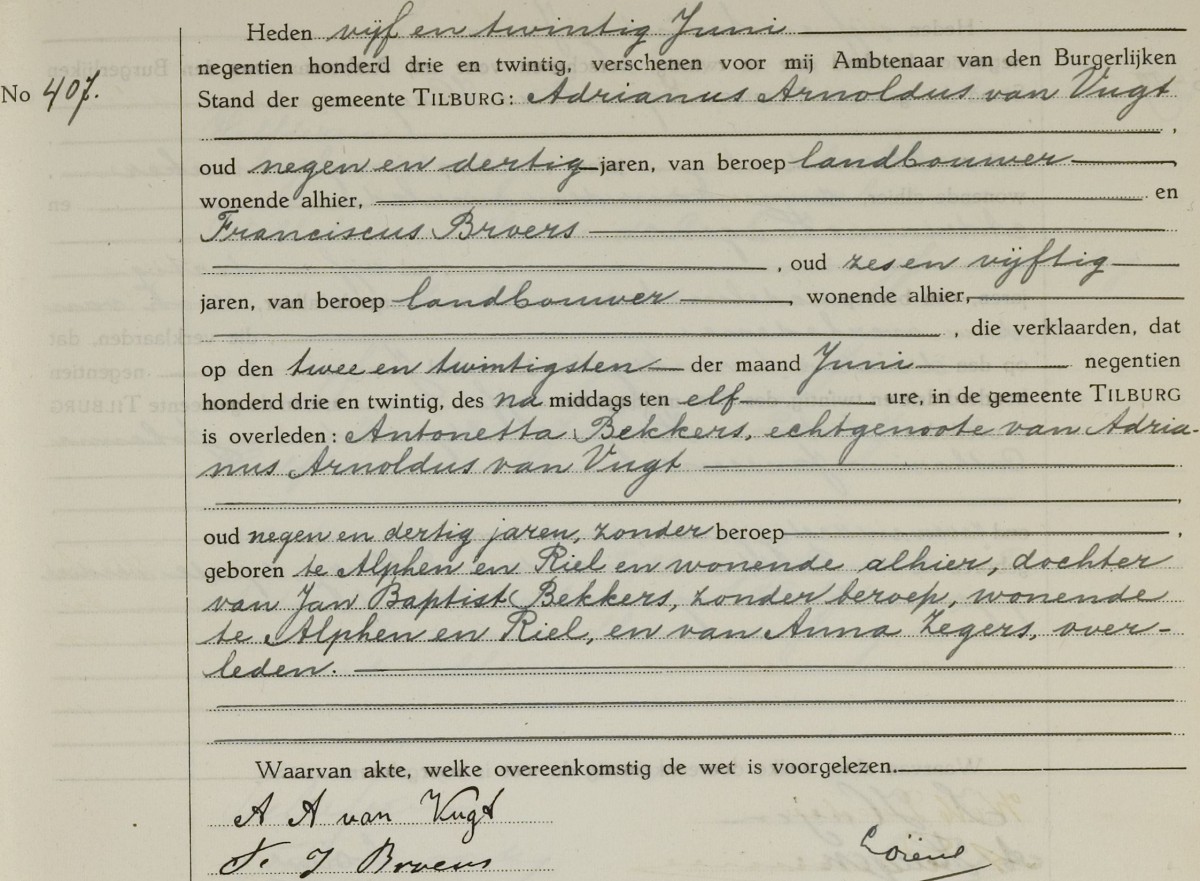 Heden vijf en twintig Juni
negentien honderd drie en twintig, verschenen voor mij Ambtenaar van den Burgerlijken
No 407.
Stand der gemeente TILBURG: Adrianus Arnoldus van Vugt
,
oud negen en dertig jaren, van beroep landbouwer,
wonende alhier, en
Franciscus Broers
, oud zes en vijftig
jaren, van beroep landbouwer, wonende alhier,
, die verklaarden, dat
op den twee en twintigsten der maand Juni negentien
honderd drie en twintig, des na middags ten elf ure, in de gemeente TILBURG
is overleden: Antonetta Bekkers, echtgenoote van Adria-
nus Arnoldus van Vugt
,
oud negen en dertig jaren, zonder beroep,
geboren te Alphen en Riel en wonende alhier, dochter
van Jan Baptist Bekkers, zonder beroep, wonende
te Alphen en Riel, en van Anna Zegers, over-
leden.
Waarvan akte, welke overeenkomstig de wet is voorgelezen.
A A van Vugt
F. J Broers